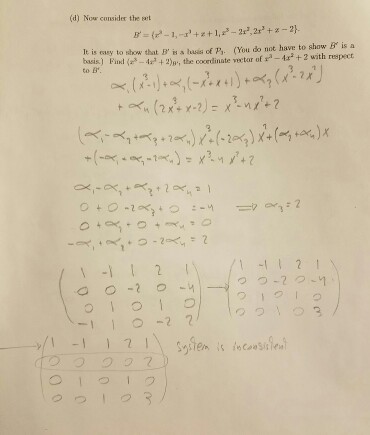 (d) Now consider the set
B' = {x³ − 1, −x³ + x + 1, x³ − 2x², 2x³ + x − 2}.
It is easy to show that B' is a basis of P₃. (You do not have to show B' is a
basis.) Find (x³ − 4x² + 2)B', the coordinate vector of x³ − 4x² + 2 with respect
to B'.
α₁(x³−1) + α₂(−x³+x+1) + α₃(x³−2x²)
+ α₄(2x³+x−2) = x³−4x²+2
(α₁−α₂+α₃+2α₄)x³+(−2α₃)x²+(α₂+α₄)x
+(−α₁+α₂−2α₄) = x³−4x²+2
α₁−α₂+α₃+2α₄ = 1
0 + 0 −2α₃ + 0 = −4 ⟹ α₃ = 2
0 + α₂ + 0 + α₄ = 0
−α₁+α₂+0−2α₄ = 2
( 1 −1 1 2 1 ) → ( 1 −1 1 2 1 )
( 0 0 −2 0 −4 ) ( 0 0 −2 0 −4 )
( 0 1 0 1 0 ) ( 0 1 0 1 0 )
( −1 1 0 −2 2 ) ( 0 0 1 0 3 )
→ ( 1 −1 1 2 1 ) System is inconsistent
( 0 0 0 0 2 )
( 0 1 0 1 0 )
( 0 0 1 0 3 )